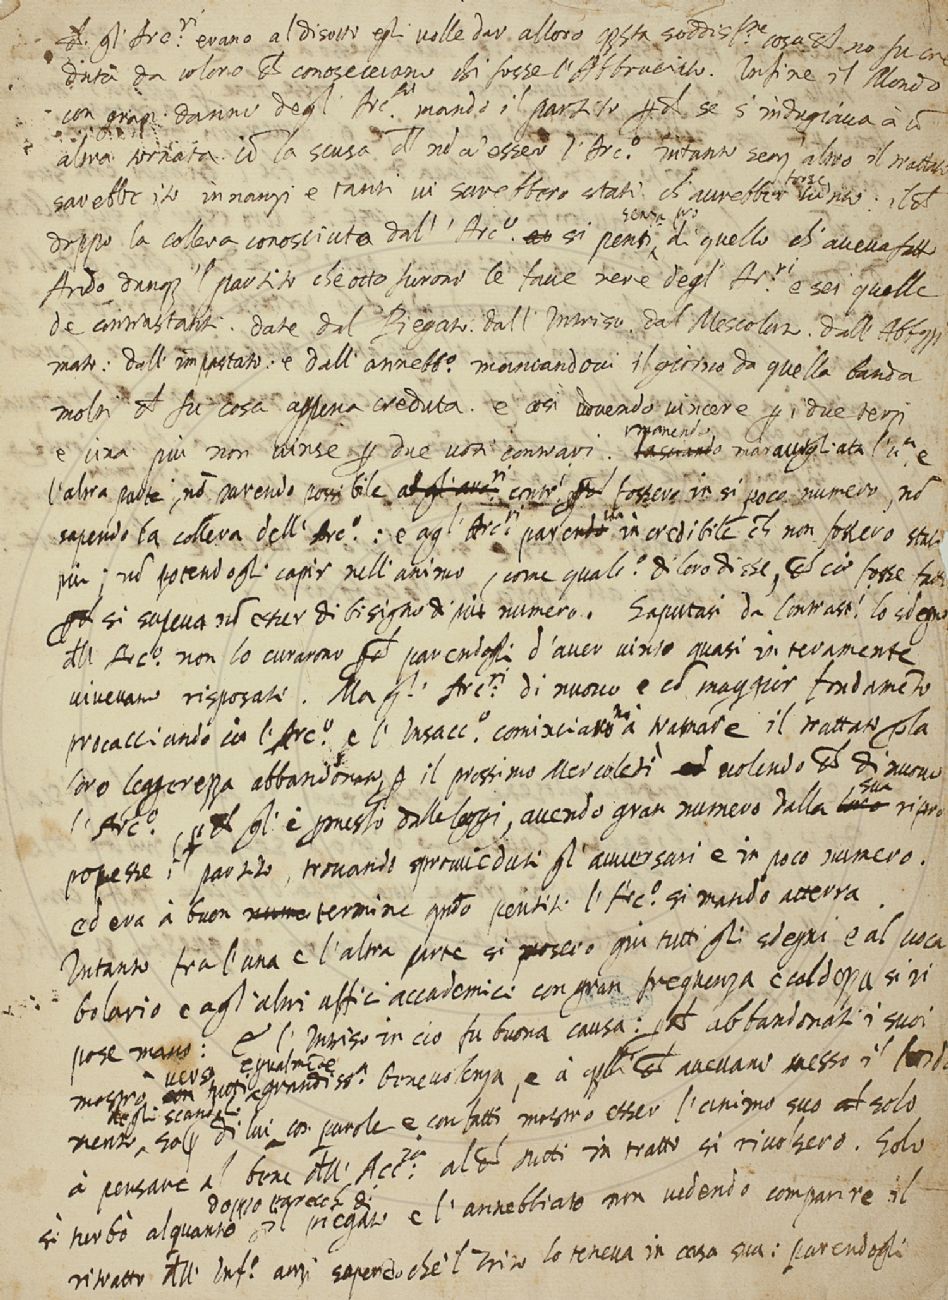 gl' Arc.ri erano al disotto egli volle dar alloro q.sta soddisf.ne cosa no fu cre
duta da coloro conoscevano chi fosse l'Abbruciato. Infine il Mondo
con gran danno degl' Arc.ri mandò il partito se s'indugiava à
altra tornata la scusa d'esser l'Arc.o intanto senz'altro il trattato
sarebbe ito innanzi e tanti vi sarebbero stati ch'avrebber forse vinto:
doppo la collera conosciuta dall' Arc.o si pentì senza pro di quello ch'aveva fatto
Andò dunq. 'l partito che otto furono le fave nere degl' Ar.ri e sei quelle
de contrastanti. date dal Piegato. dall' Intriso. dal Mescolato. dall'
mato: dall' impastato: e dall' annebb.o mancandovi il giorno da quella banda
molti fu cosa appena creduta. e così dovendo vincere p i due terzi
e una più non vinse p due voti contrari. rimanendo maravigliata l'una e
l'altra parte, nō parendo possibile contr. fossero in sì poco numero, nō
sapendo la collera dell' Arc.o: e agl' Arc.ri incredibile ch non fossero stati
più; nō potendogli capir nell'animo, come qualc.o di loro disse, ciò fosse fatto
si sapeva nō esser di bisigno di più numero. Saputasi da Contrast.i lo sdegno
dll' Arc.o non lo curarono parendogli d'aver vinto quasi interamente
vivevano risposati. Ma gl' Arc.ri di nuovo e cō maggior fondamēto
procacciando l'Arc.o e l'Insacc.o cominciarono à tramare il trattato p la
loro leggerezza abbandonato, p il prossimo Mercoledì volendo di nuovo
l'Arc.o, gl'è pmesso dalle leggi, avendo gran numero dalla sua ripro
ponesse il partito, trovando sprovveduti gl'avversari e in poco numero.
ed era à buon termine qndo pentiti l'Arc.o si mandò atterra.
Intanto fra l'una e l'altra parte si posero giù tutti gli sdegni e al voca
bolario e agl'altri affici accademici con gran frequenza e caldezza si ri
pose mano: e l'Intriso in ciò fu buona causa: abbandonati i suoi
mostrò verso tutti egualmēte grandiss.a benevolenza, e à avevano messo il
mento degli scandoli di lui con parole e con fatti mostrò esser l'animo suo solo
à pensare al bene dll' Acc.za al tutti in tratto si rivolsero. Solo
si turbò alquanto doppo parecch. dì 'l piegato e l'annebbiato non vedendo comparire il
ritratto dll' Inf.o anzi sapendo che 'l Trito lo teneva in casa sua: parendogli